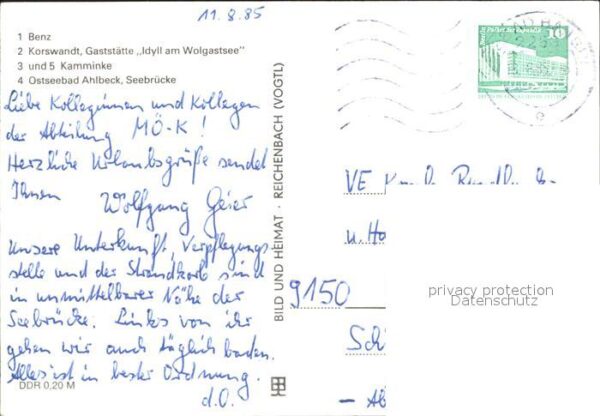 11.8.85
1 Benz
2 Korswandt, Gaststätte „Idyll am Wolgastsee"
3 und 5 Kamminke
4 Ostseebad Ahlbeck, Seebrücke
Liebe Kolleginnen und Kollegen
der Abteilung MÖ-K!
Herzliche Urlaubsgrüße sendet
Ihnen Wolfgang Geier
Unsere Unterkunft, Verpflegungs
stelle und der Strandkorb sind
in unmittelbarer Nähe der
Seebrücke. Links von ihr
gehen wir auch täglich baden.
Alles ist in bester Ordnung.
d.O.
DDR 0,20 M
BILD UND HEIMAT · REICHENBACH (VOGTL)
10
VE
u. Ho
9150
privacy protection
Datenschutz